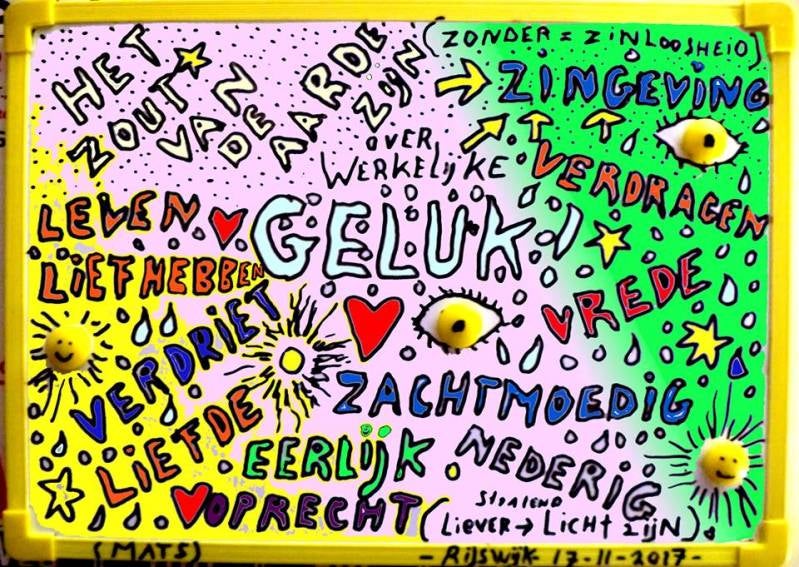 (ZONDER = ZINLOOSHEID)
HET
ZOUT
VAN
DE
AARDE
ZIJN
ZINGEVING
OVER
WERKELIJKE
VERDRAGEN
LEVEN
GELUK!
LIEFHEBBEN
VREDE
VERDRIET
ZACHTMOEDIG
LIEFDE
EERLIJK.
NEDERIG
OPRECHT
STRALEND
(LIEVER → LICHT ZIJN).
(MATS)
- RIJSWIJK 17-11-2017 -